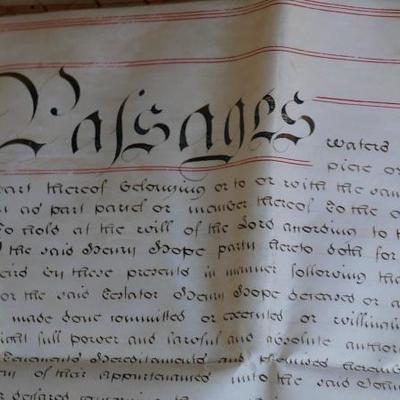 Passages waters
part thereof belonging or to or with the same
as part parcel or member thereof To the
To hold at the will of the Lord according to
the said Henry Hope party hereto doth for
by these presents in manner following
or the said Testator Henry Hope deceased or
made done committed or executed or willingly
full power and lawful and absolute
Tenements Hereditaments and premises
of their appurtenances unto the said John